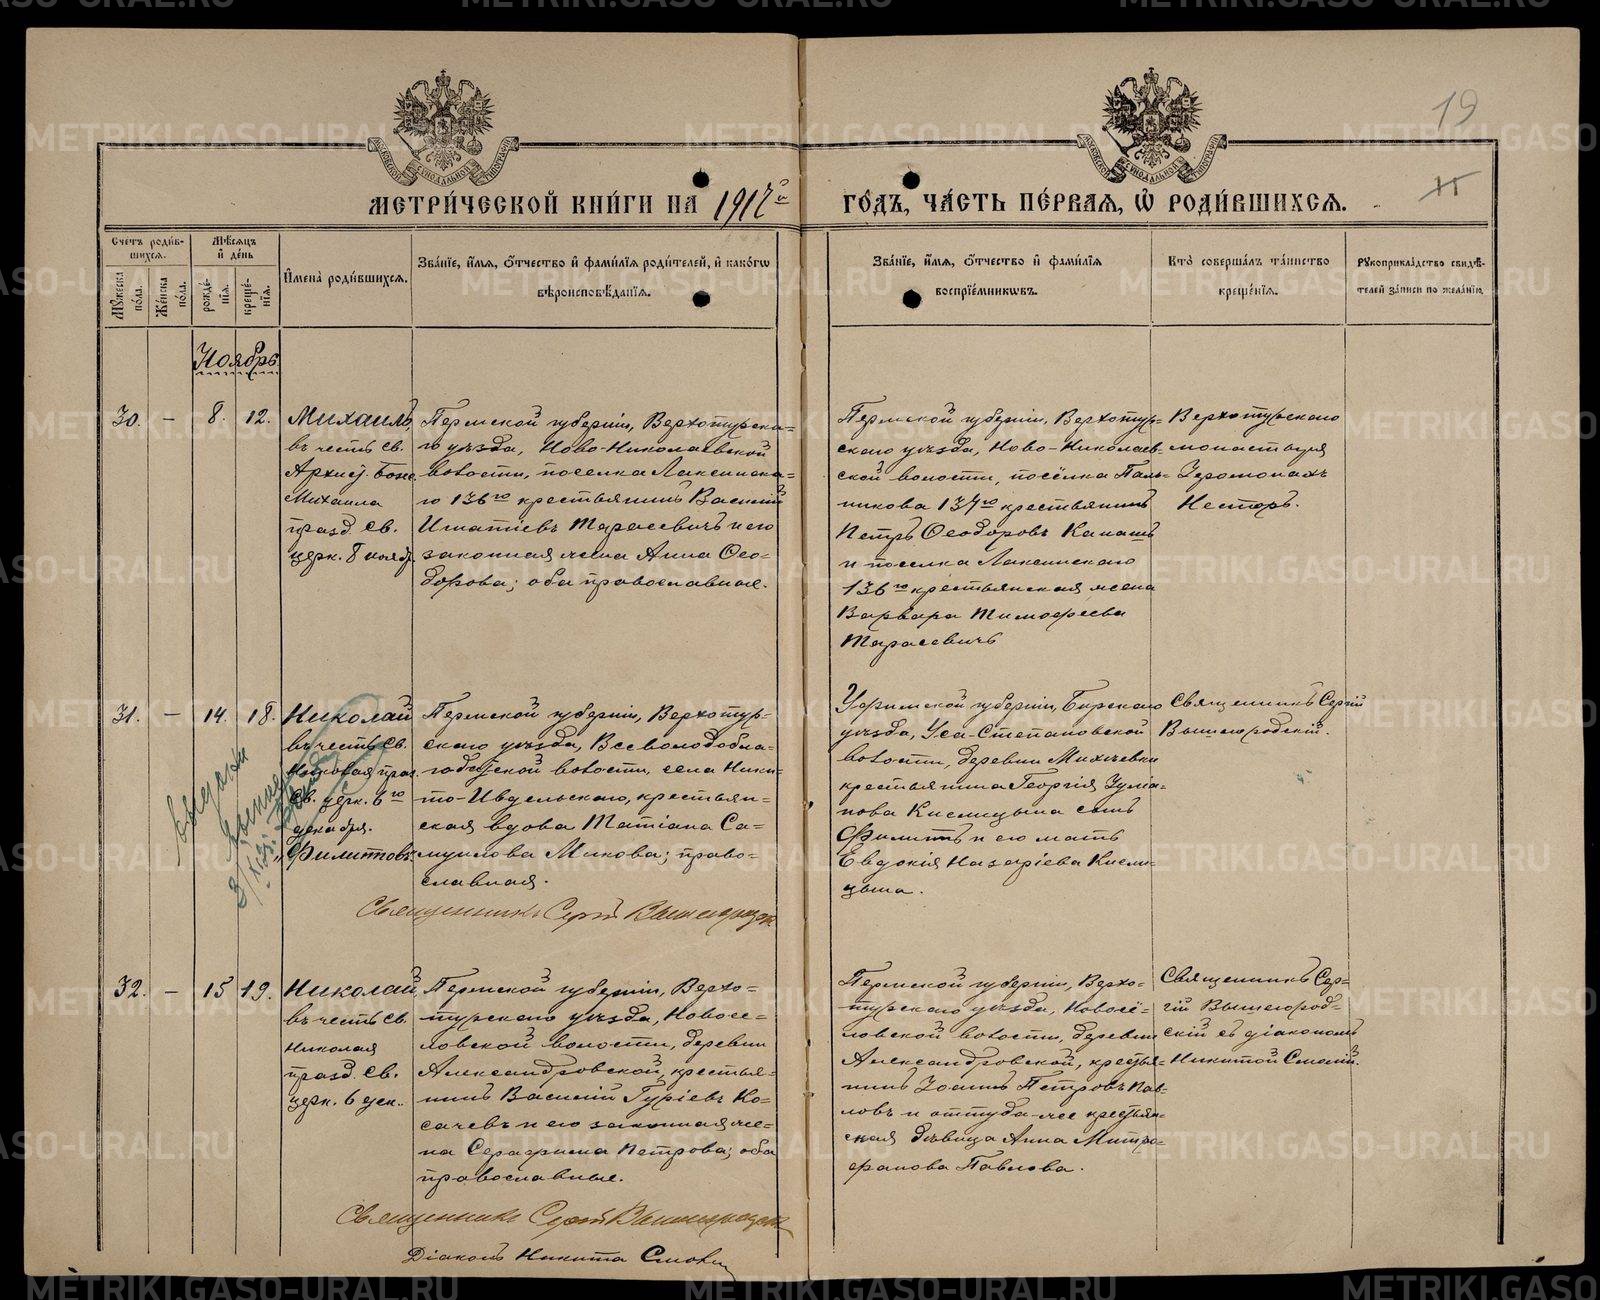 19
МЕТРИ́ЧЕСКОЙ КНИ́ГИ НА 1917й
ГО́ДЪ, ЧА́СТЬ ПЕ́РВАѦ, Ѡ РОДИ́ВШИХСѦ.
Сче́тъ роди́в-
шихсѧ.
Мѣ́сѧцъ
и҆ де́нь
Мꙋ́жеска
по́ла.
Же́нска
по́ла.
рожде́-
нїѧ.
креще́-
нїѧ.
И҆мена̀ роди́вшихсѧ.
Зва́нїе, и҆́мѧ, ѻ҆́тчество и҆ фами́лїѧ роди́телей, и҆ како́гѡ
вѣроисповѣ́данїѧ.
Зва́нїе, и҆́мѧ, ѻ҆́тчество и҆ фами́лїѧ
воспрїе́мникѡвъ.
Кто̀ соверша́лъ та́инство
креще́нїѧ.
Рꙋкоприкла́дство свидѣ́-
телей за́писи по жела́нїю.
Ноябрь
30. – 8. 12.
Михаилъ
въ честь св.
Архис. Бож.
Михаила
празд. св.
церк. 8 ноябр.
Пермской губерніи, Верхотурска-
го уѣзда, Ново-Николаевской
волости, поселка Лаксинска-
го 136го крестьянинъ Василій
Игнатіевъ Тарасевичъ и его
законная жена Анна Ѳео-
дорова; оба православные.
Пермской губерніи, Верхотур-
скаго уѣзда, Ново-Николаев-
ской волости, посёлка Паль-
никова 137го крестьянинъ
Петръ Ѳеодоровъ Капашъ
и поселка Лаксинскаго
136го крестьянская жена
Варвара Тимоѳеева
Тарасевичъ
Верхотурскаго
монастыря
Іеромонахъ
Несторъ.
31. – 14. 18.
Николай
въ честь св.
Николая праз.
св. церк. 6го
декабря.
„Филипповъ“
Пермской губерніи, Верхотур-
скаго уѣзда, Всеволодобла-
годатской волости, села Ники-
то-Ивдельскаго, крестьян-
ская вдова Татіана Са-
муилова Микова; право-
славная.
Священникъ Сергій Вышегородск
Уфимской губерніи, Бирскаго
уѣзда, Уса-Степановской
волости, деревни Михѣевки
крестьянина Георгія Іуліа-
нова Кислицына сынъ
Филиппъ и его мать
Евдокія Назаріева Кисли-
цына.
Священникъ Сергій
Вышегородскій.
32. – 15 19.
Николай
въ честь св.
Николая
празд. св.
церк. 6 дек.
Пермской губерніи, Верхо-
турскаго уѣзда, Новосе-
ловской волости, деревни
Александровской, крестья-
нинъ Василій Гуріевъ Ко-
сачевъ и его законная же-
на Серафима Петрова; оба
православные.
Священникъ Сергій Вышегородск
Діаконъ Никита
Пермской губерніи, Верхо-
турскаго уѣзда, Новосё-
ловской волости, деревни
Александровской, крестья-
нинъ Іоаннъ Петровъ Пав-
ловъ и оттуда-же крестьян-
ская дѣвица Анна Митро-
фанова Павлова.
Священникъ Сер-
гій Вышегород-
скій съ діакономъ
Никитой
METRIKI.GASO-URAL.RU